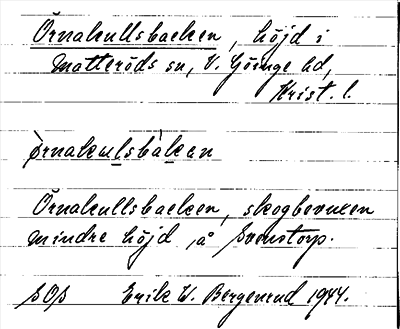 Örnakullsbacken, höjd i
Matteröds sn, V. Göinge hd,
Krist. l.
ørnakulsbakan
Örnakullsbacken, skogbevuxen
mindre höjd, å Svenstorp.
SOS Erik W. Bergenrud 1944.